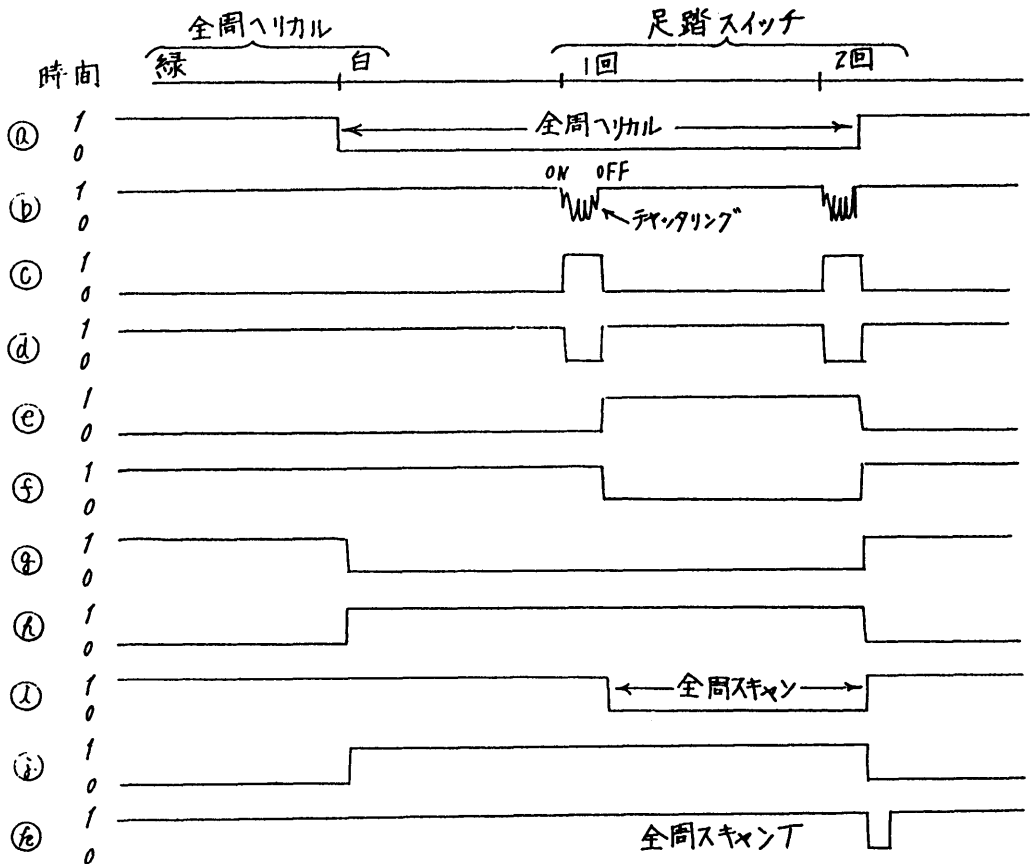 全周ヘリカル 足踏スイッチ
時間 緑 白 1回 2回
ⓐ 1 0 全周ヘリカル
ON OFF
ⓑ 1 0 チャッタリング
ⓒ 1 0
ⓓ 1 0
ⓔ 1 0
ⓕ 1 0
ⓖ 1 0
ⓗ 1 0
1 0 全周スキャン
ⓙ 1 0
ⓚ 1 0 全周スキャンT